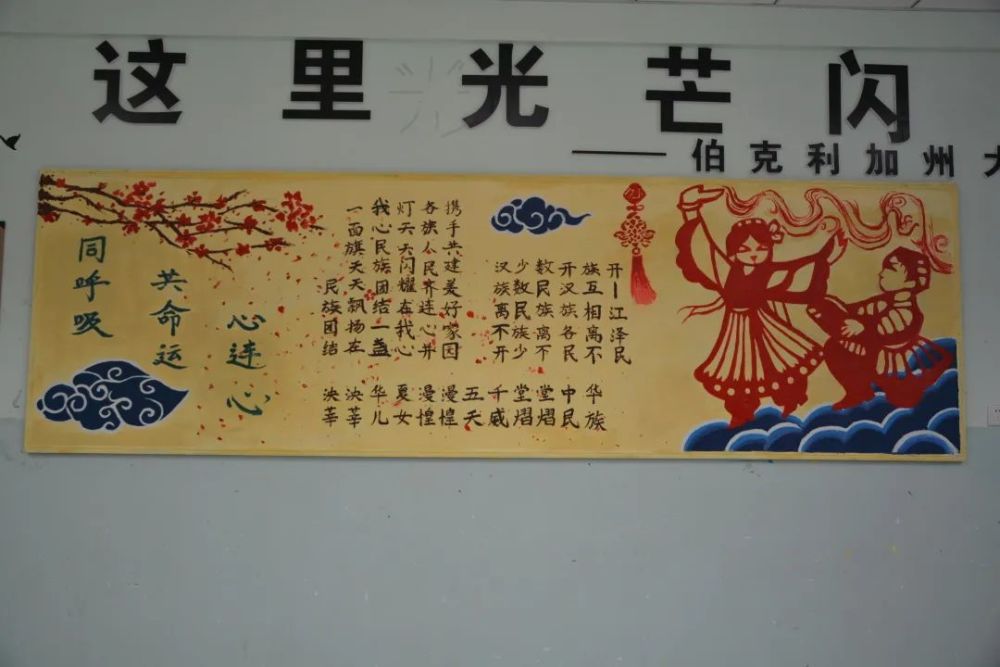 这里光芒闪
——伯克利加州大
同呼吸
共命运
心连心
民族团结
一面旗天天飘扬在
我心民族团结一盏
灯天天闪耀在我心
各族人民齐连心并
携手共建美好家园
汉族离不开
少数民族少
数民族离不
开汉族各民
族互相离不
开—江泽民
泱泱华夏漫漫五千堂堂中华
莘莘儿女惶惶天威熠熠民族